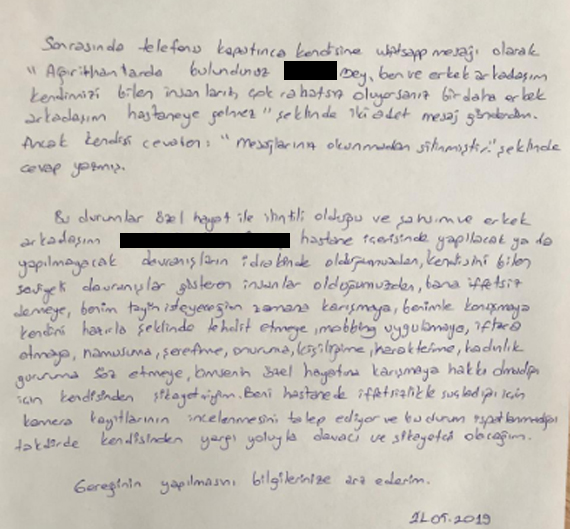 Sonrasında telefonu kapatınca kendisine whatsapp mesajı olarak
" Ağır ithamlarda bulundunuz Bey, ben ve erkek arkadaşım
kendimizi bilen insanlarız, çok rahatsız oluyorsanız bir daha erkek
arkadaşım hastaneye gelmez " şeklinde iki adet mesaj gönderdim.
Ancak kendisi cevaben: " Mesajlarınız okunmadan silinmiştir." şeklinde
cevap yazmış.
Bu durumlar özel hayat ile ilintili olduğu ve şahsım ve erkek
arkadaşım hastane içerisinde yapılacak ya da
yapılmayacak davranışların idrakinde olduğumuzdan, kendisini bilen
seviyeli davranışlar gösteren insanlar olduğumuzdan, bana iffetsiz
demeye, benim tayin isteyeceğim zamana karışmaya, benimle konuşmaya
kendini hazırla şeklinde tehdit etmeye, mobbing uygulamaya, iftira
atmaya, namusuma, şerefime, onuruma, kişiliğime, karakterime, kadınlık
gururuma söz etmeye, kimsenin özel hayatına karışmaya hakkı olmadığı
için kendisinden şikayetçiyim. Beni hastanede iffetsizlikle suçladığı için
kamera kayıtlarının incelenmesini talep ediyor ve bu durum ispatlanmadığı
takdirde kendisinden yargı yoluyla davacı ve şikayetçi olacağım.
Gereğinin yapılmasını bilgilerinize arz ederim.
21.05.2019